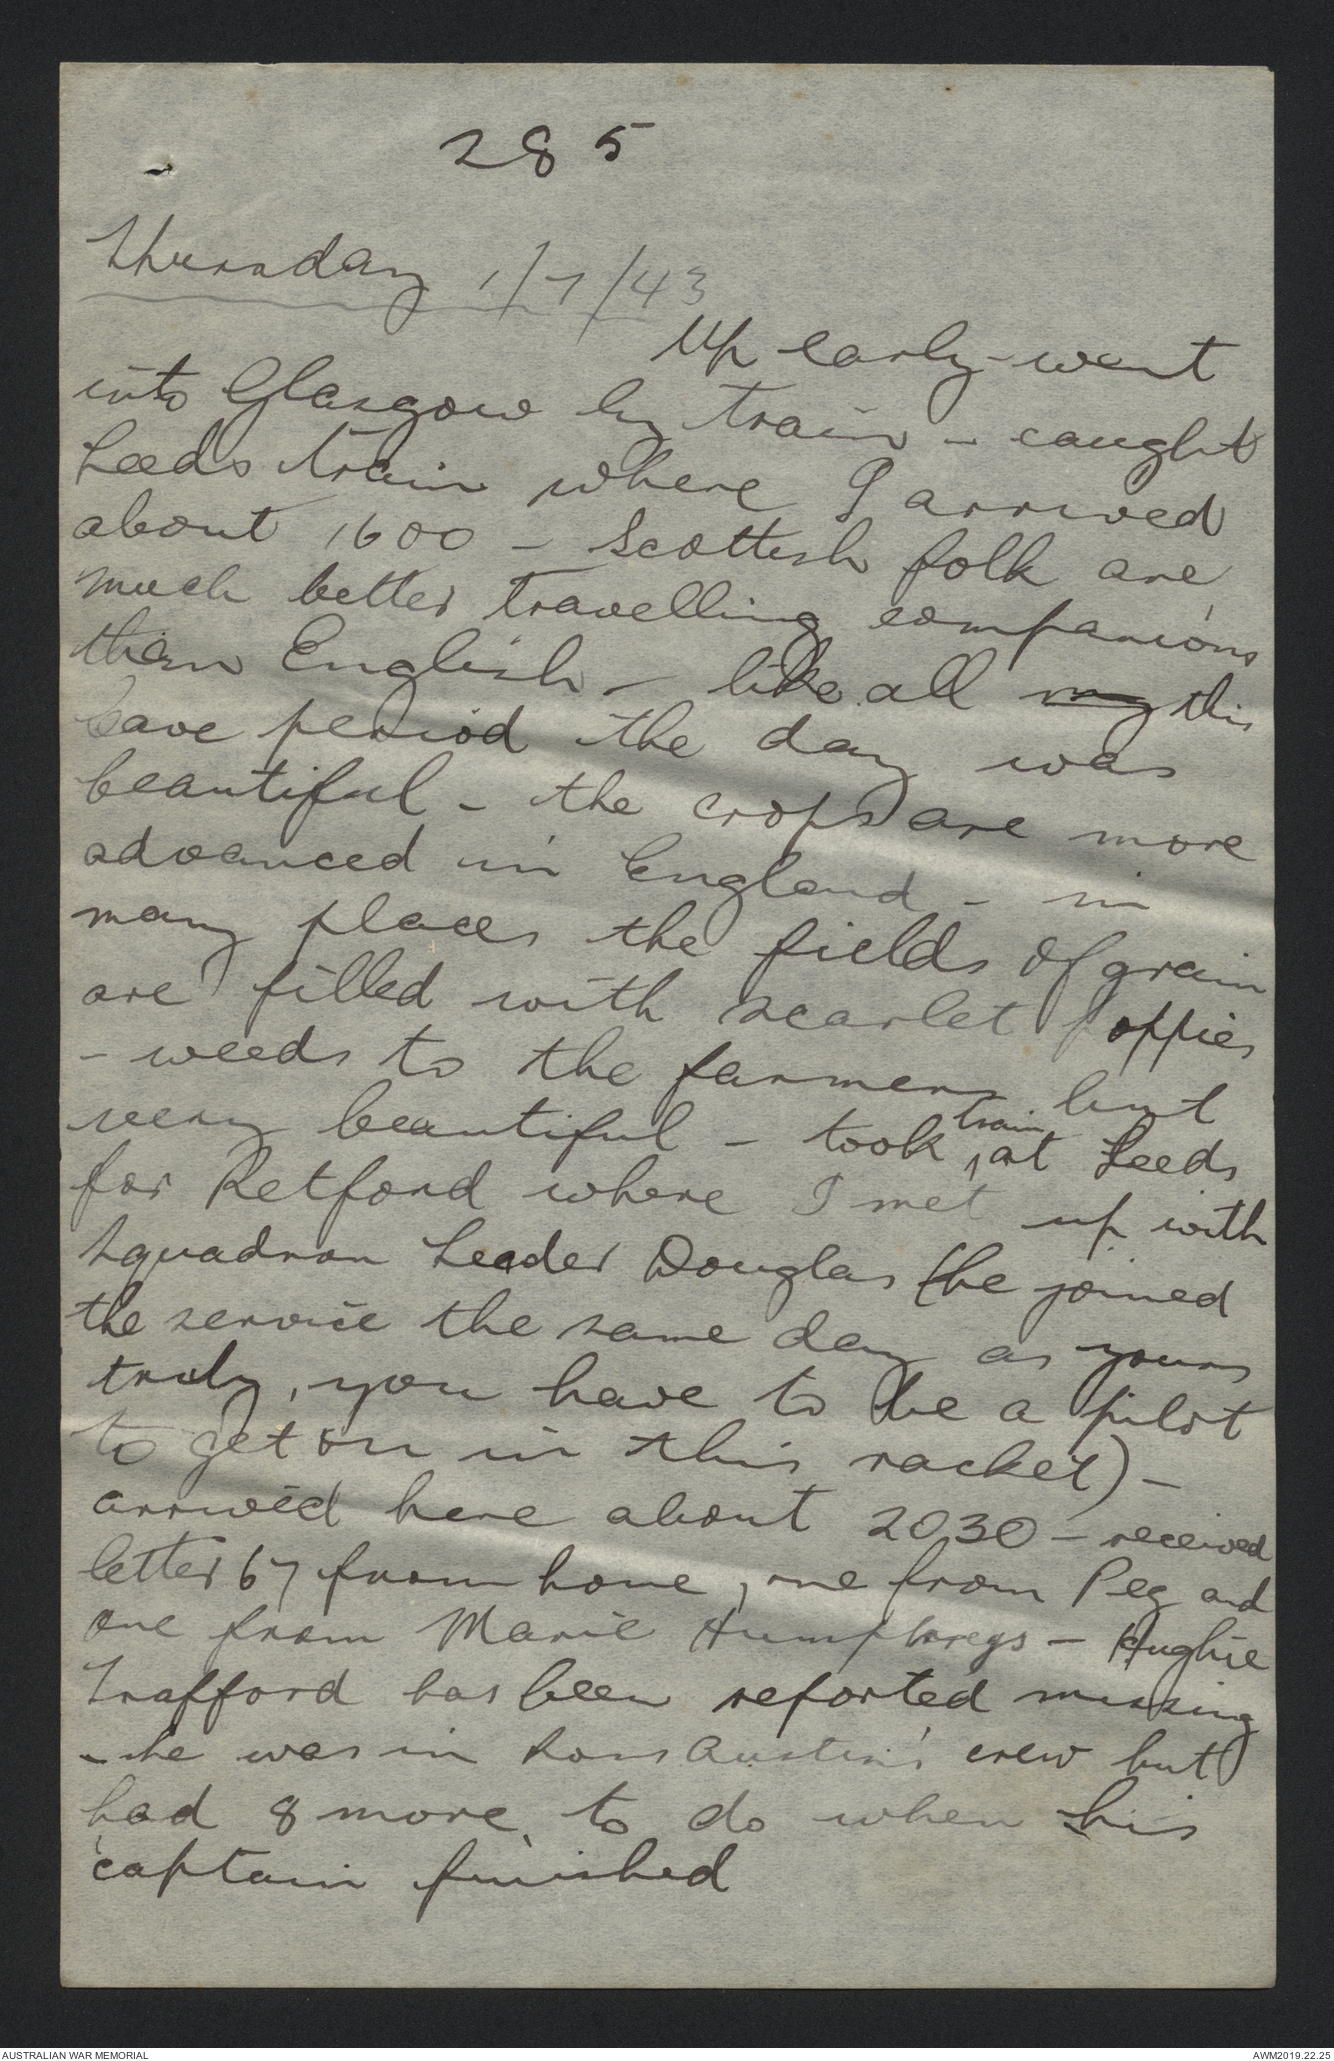 285
Thursday 1/7/43
Up early - went
into Glasgow by train - caught
Leeds train where I arrived
about 1600 - Scottish folk are
much better travelling companions
than English - like all my this
leave period the day was
beautiful - the crops are more
advanced in England - in
many places the fields of grain
are filled with scarlet poppies
- weeds to the farmers but
very beautiful - took train at Leeds
for Retford where I met up with
Squadron Leader Douglas (he joined
the service the same day as yours
truly, you have to be a pilot
to get on in this racket) -
arrived here about 2030 - received
letter 67 from home, one from Peg and
one from Marie Humphreys - Hughie
Trafford has been reported missing
- he was in Rons Austin's crew but
had 8 more to do when his
captain finished
AUSTRALIAN WAR MEMORIAL
AWM2019.22.25